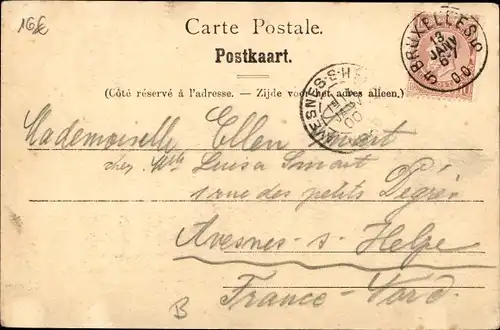 16€
Carte Postale.
Postkaart.
(Côté réservé à l'adresse. — Zijde voor het adres alleen.)
BRUXELLES 5
13
JANV
6
00
5
AVESNES-S-HE
00
Mademoiselle Ellen Smart
chez Mlle Luisa Smart
1 rue des petits Degrés
Avesnes-s-Helpe
France-Nord.
B